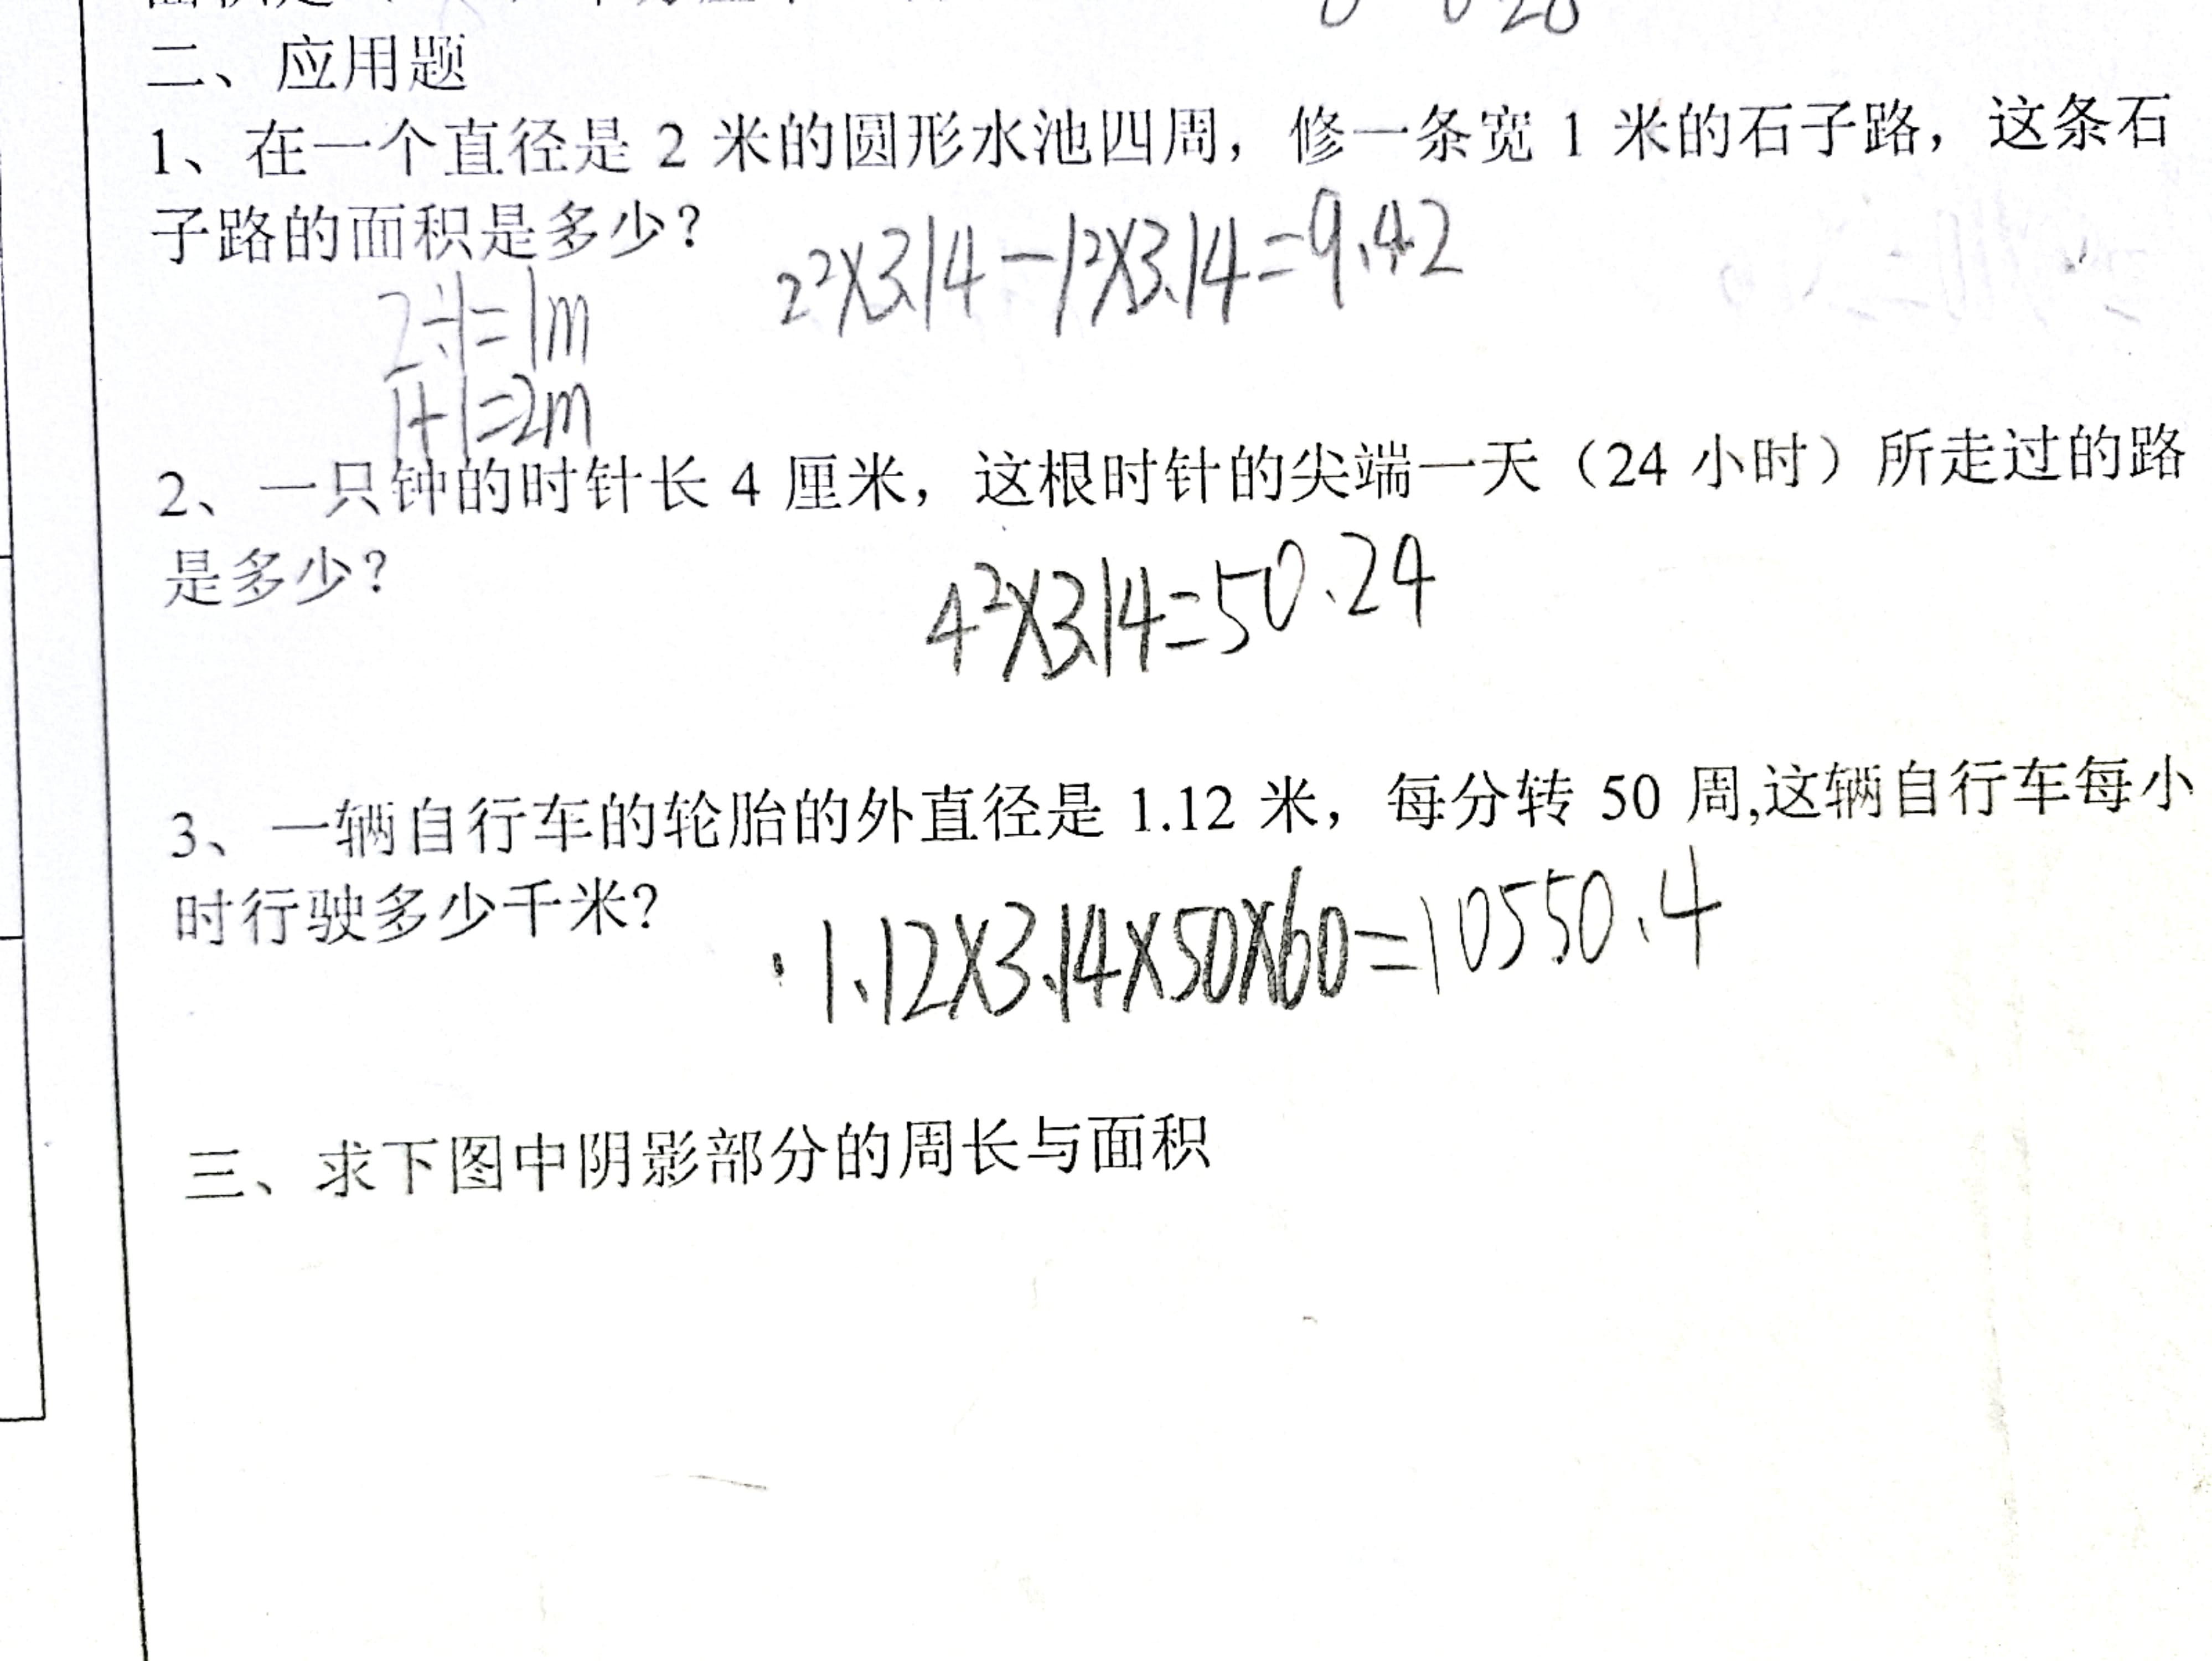 二、应用题
1、在一个直径是 2 米的圆形水池四周，修一条宽 1 米的石子路，这条石
子路的面积是多少？
2²×3.14-1²×3.14=9.42
=1m
1+1=2m
2、一只钟的时针长 4 厘米，这根时针的尖端一天（24 小时）所走过的路
是多少？
4²×3.14=50.24
3、一辆自行车的轮胎的外直径是 1.12 米，每分转 50 周,这辆自行车每小
时行驶多少千米？
1.12×3.14×50×60=10550.4
三、求下图中阴影部分的周长与面积